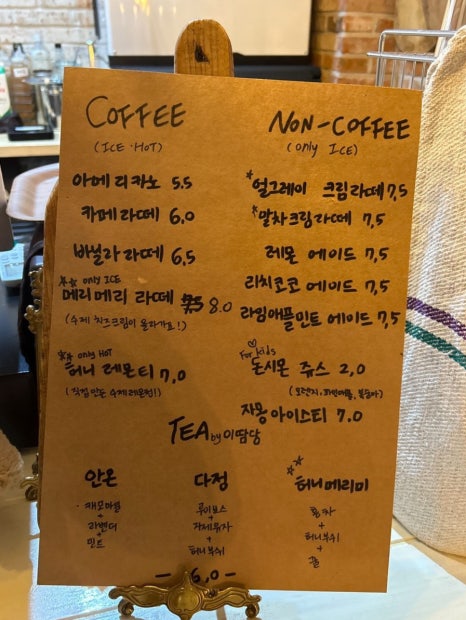 COFFEE
(ICE·HOT)
아메리카노 5.5
카페라떼 6.0
바닐라 라떼 6.5
☆☆ only ICE
메리메리 라떼 8.0
(수제 치즈크림이 올라가요!)
☆☆ only HOT
허니 레몬티 7,0
(직접 만든 수제레몬청!)
NON-COFFEE
(only ICE)
☆얼그레이 크림라떼 7,5
☆말차크림라떼 7,5
레몬 에이드 7,5
리치코코 에이드 7,5
라임애플민트 에이드 7,5
♡
For kids
돈시몬 쥬스 2,0
(오렌지, 파인애플, 복숭아)
자몽아이스티 7.0
TEA by 이땀당
안온
캐모마일
+
라벤더
+
민트
다정
루이보스
+
+
허니부쉬
☆☆
허니메리미
홍차
+
허니부쉬
+
귤
- 6,0 -